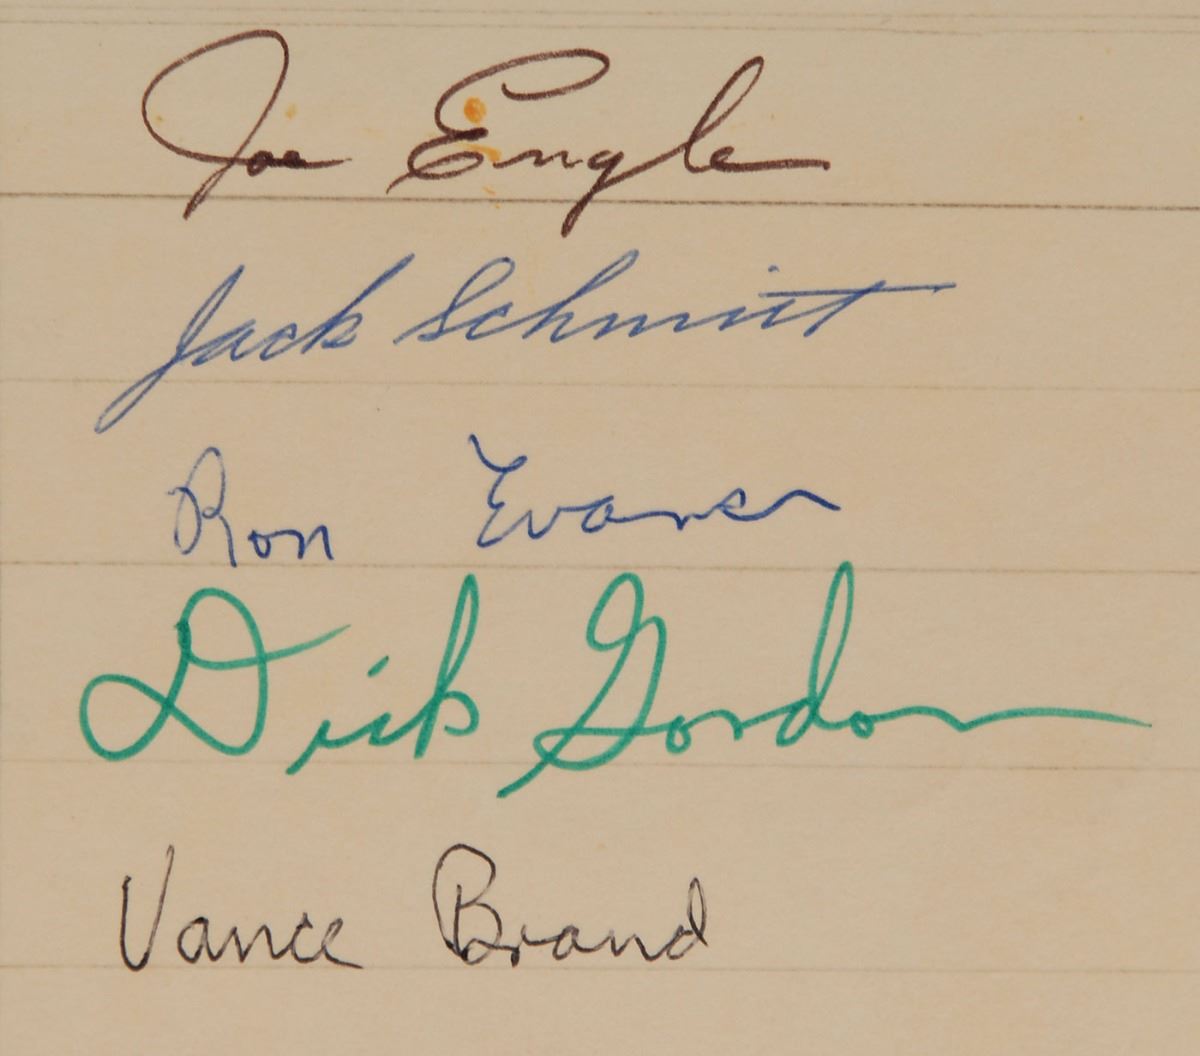 Joe Engle
Jack Schmitt
Ron Evans
Dick Gordon
Vance Brand